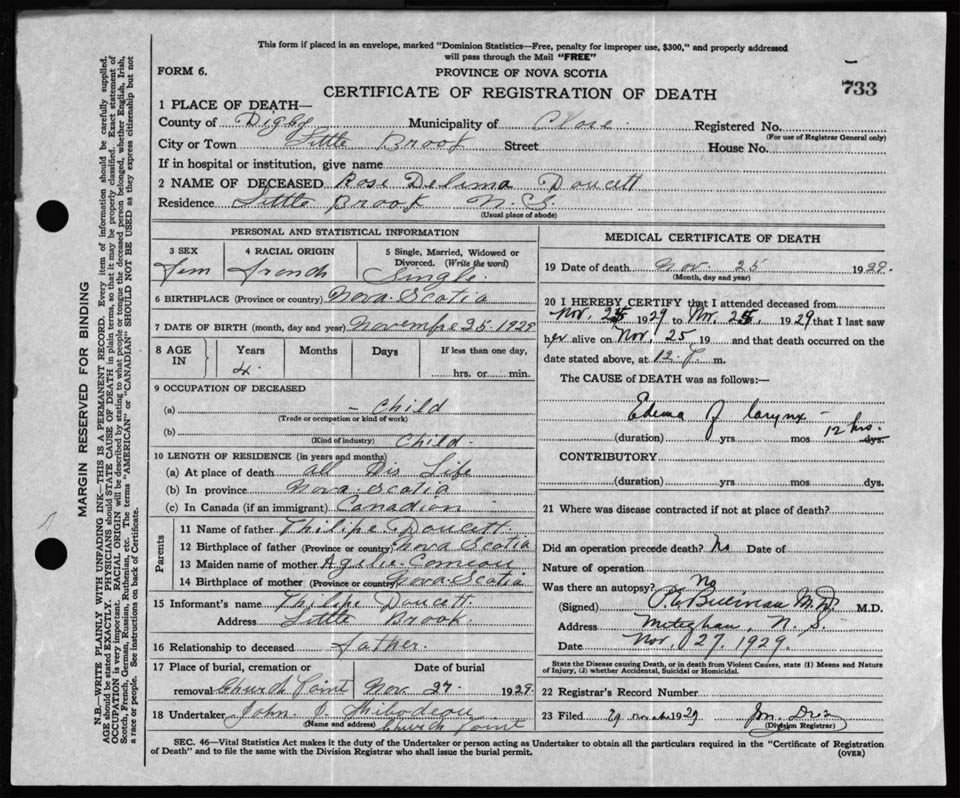 This form if placed in an envelope, marked "Dominion Statistics—Free, penalty for improper use, $300," and properly addressed
will pass through the Mail "FREE"
FORM 6.
PROVINCE OF NOVA SCOTIA
733
CERTIFICATE OF REGISTRATION OF DEATH
1 PLACE OF DEATH—
County of Digby Municipality of Clare Registered No.
(For use of Registrar General only)
City or Town Little Brook Street House No.
If in hospital or institution, give name
2 NAME OF DECEASED Rose Delima Doucett
Residence Little Brook N.S.
(Usual place of abode)
PERSONAL AND STATISTICAL INFORMATION
3 SEX 4 RACIAL ORIGIN 5 Single, Married, Widowed or
Divorced. (Write the word)
Fem French Single
6 BIRTHPLACE (Province or country) Nova Scotia
7 DATE OF BIRTH (month, day and year) Novembre 25. 1929
8 AGE IN Years Months Days If less than one day,
4. hrs. or min.
9 OCCUPATION OF DECEASED
(a) – Child
(Trade or occupation or kind of work)
(b) Child.
(Kind of industry)
10 LENGTH OF RESIDENCE (in years and months)
(a) At place of death all His Life
(b) In province Nova Scotia
(c) In Canada (if an immigrant) Canadien
Parents
11 Name of father Philipe Doucett
12 Birthplace of father (Province or country) Nova Scotia
13 Maiden name of mother Comeau
14 Birthplace of mother (Province or country) Nova Scotia
15 Informant's name Philipe Doucett
Address Little Brook
16 Relationship to deceased father.
17 Place of burial, cremation or Date of burial
removal Church Point Nov 27. 1929.
18 Undertaker John J. Thibodeau
(Name and address) Church Point
MEDICAL CERTIFICATE OF DEATH
19 Date of death Nov. 25 1929.
(Month, day and year)
20 I HEREBY CERTIFY that I attended deceased from
Nov. 25 1929 to Nov. 25, 1929 that I last saw
her alive on Nov. 25, 19 and that death occurred on the
date stated above, at 12 P. m.
The CAUSE of DEATH was as follows:—
Edema of larynx –
(duration) yrs. mos 12 hrs. dys.
CONTRIBUTORY
(duration) yrs. mos. dys.
21 Where was disease contracted if not at place of death?
Did an operation precede death? No Date of
Nature of operation
Was there an autopsy? No
(Signed) Belliveau M.D. M.D.
Address Meteghan, N. S.
Date Nov. 27. 1929.
State the Disease causing Death, or in death from Violent Causes, state (1) Means and Nature
of Injury, (2) whether Accidental, Suicidal or Homicidal.
22 Registrar's Record Number
23 Filed 1929
(Division Registrar)
SEC. 46—Vital Statistics Act makes it the duty of the Undertaker or person acting as Undertaker to obtain all the particulars required in the "Certificate of Registration
of Death" and to file the same with the Division Registrar who shall issue the burial permit.
(OVER)
MARGIN RESERVED FOR BINDING
N.B.—WRITE PLAINLY WITH UNFADING INK—THIS IS A PERMANENT RECORD. Every item of information should be carefully supplied.
AGE should be stated EXACTLY. PHYSICIANS should STATE CAUSE OF DEATH in plain terms, so that it may be properly classified. Exact statement of
OCCUPATION is very important. RACIAL ORIGIN will be described by stating to what people or tongue the deceased person belonged, whether English, Irish,
Scotch, French, German, Russian, Ruthenian, etc. The terms "AMERICAN" or "CANADIAN" SHOULD NOT BE USED as they express citizenship but not
a race or people. See instructions on back of Certificate.